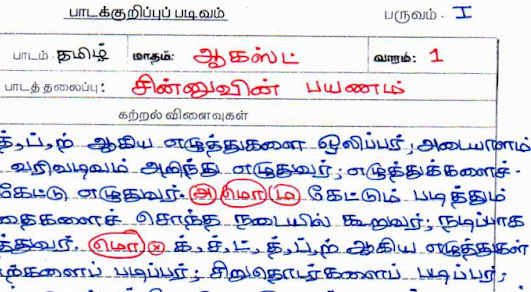 பாடக்குறிப்புப் படிவம் பருவம் - I
பாடம் தமிழ் மாதம்: ஆகஸ்ட் வாரம்: 1
பாடத் தலைப்பு: சின்னுவின் பயணம்
கற்றல் விளைவுகள்
த்,ப்,ற் ஆகிய எழுத்துகளை ஒலிப்பர்; அடையாளம்
வரிவடிவம் அறிந்து எழுதுவர்; எழுத்துக்களைச்-
கேட்டு எழுதுவர். அ மொ 1.2 கேட்டும் படித்தும்
தைகளைச் சொந்த நடையில் கூறுவர்; நடிப்பாக
த்துவர். மொ க்,ச்,ட்,த்,ப்,ற் ஆகிய எழுத்துகள்
களைப் படிப்பர்; சிறுதொடர்களைப் படிப்பர்,